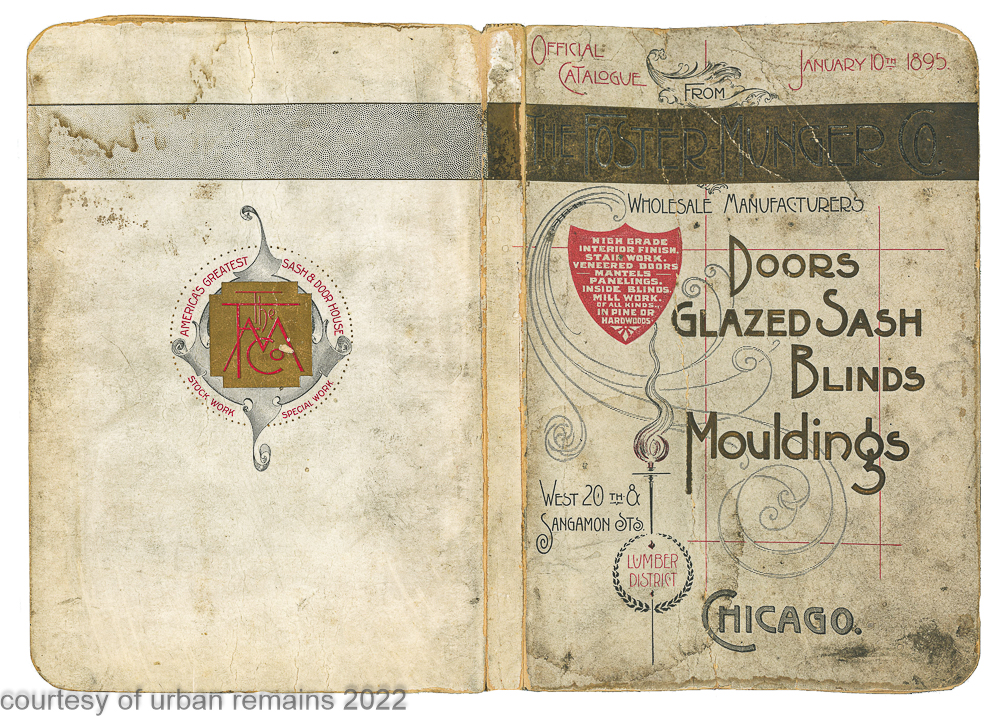 AMERICA'S GREATEST
SASH & DOOR HOUSE
The
F M
Co
STOCK WORK
SPECIAL WORK
OFFICIAL
CATALOGUE
FROM
JANUARY 10TH 1895.
THE FOSTER MUNGER CO.
WHOLESALE MANUFACTURERS
HIGH GRADE
INTERIOR FINISH.
STAIR WORK.
VENEERED DOORS
MANTELS
PANELINGS.
INSIDE BLINDS.
MILL WORK.
OF ALL KINDS.
IN PINE OR
HARDWOODS.
DOORS
GLAZED SASH
BLINDS
Mouldings
WEST 20TH &
SANGAMON STS.
LUMBER
DISTRICT
CHICAGO.
courtesy of urban remains 2022